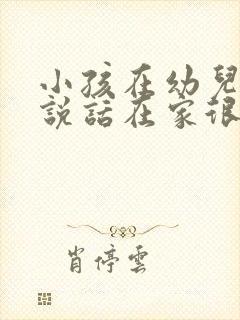 小孩在幼兒
說話在家很
肖停雲